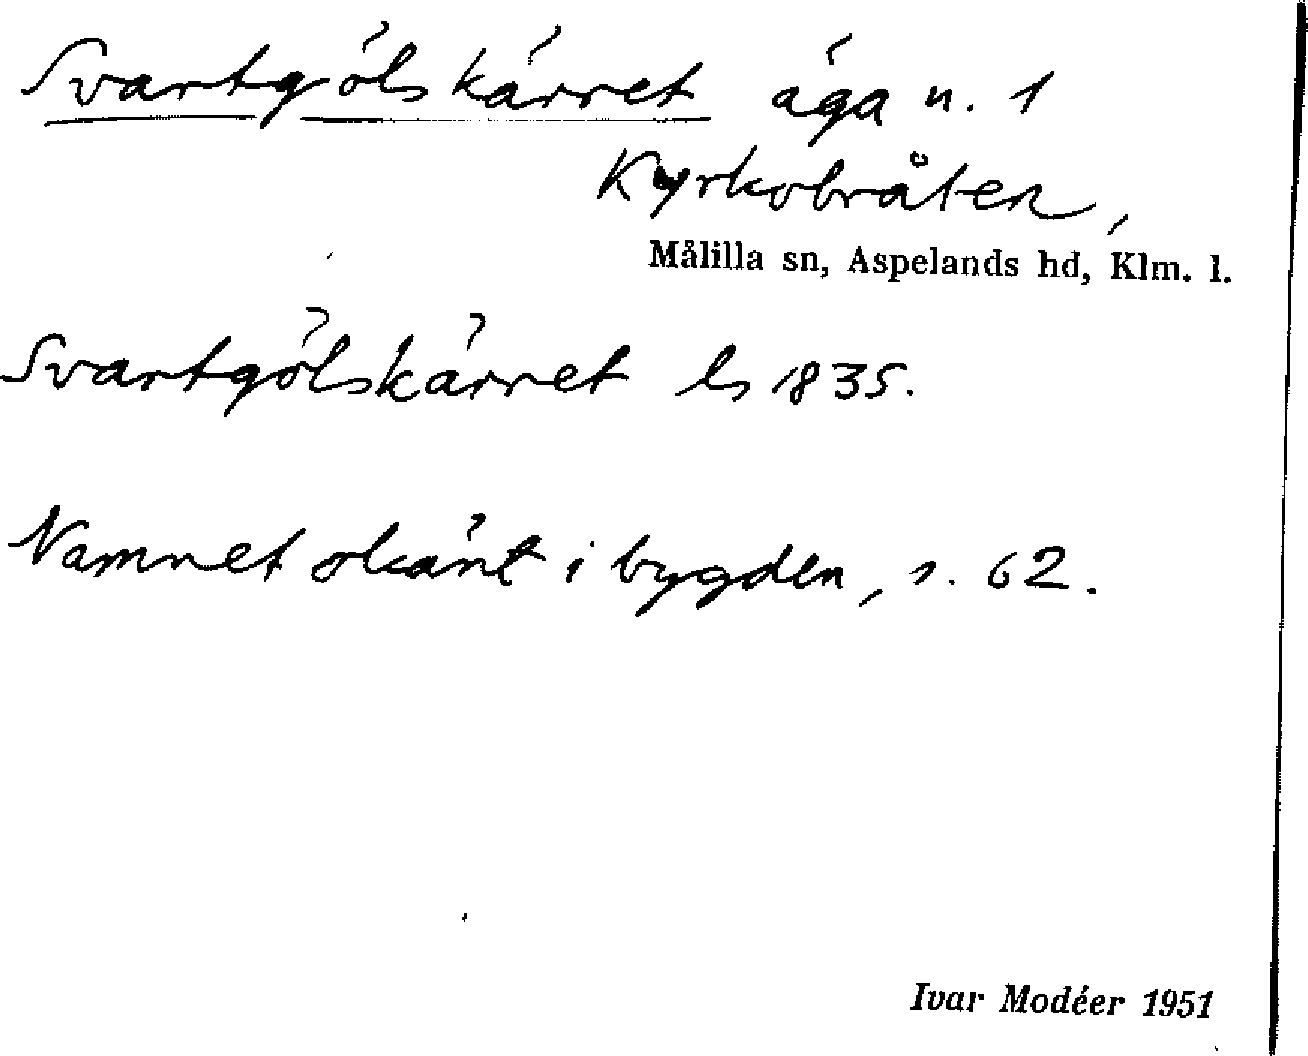 Svartgölskärret äga n. 1
Kyrkobråten,
Målilla sn, Aspelands hd, Klm. l.
Svartgölskärret ls 1835.
Namnet okänt i bygden, s. 62.
Ivar Modéer 1951